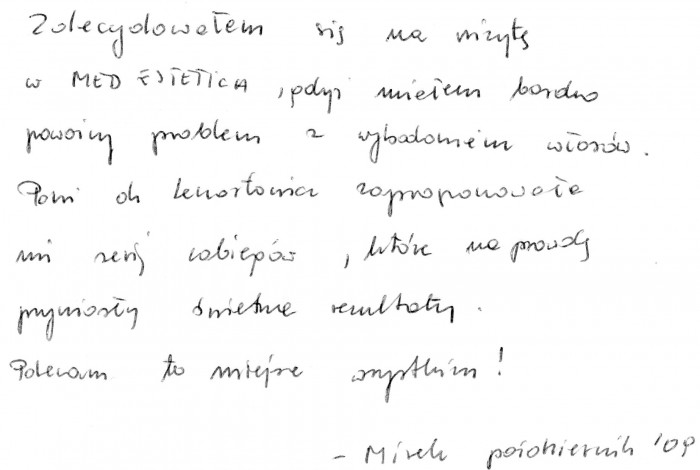 Zdecydowałem się na wizytę
w MED ESTETICA, gdyż miałem bardzo
poważny problem z wypadaniem włosów.
Pani dr Lenartowicz zaproponowała
mi serię zabiegów, które na prawdę
przyniosły świetne rezultaty.
Polecam to miejsce wszystkim!
- Mirek październik '09